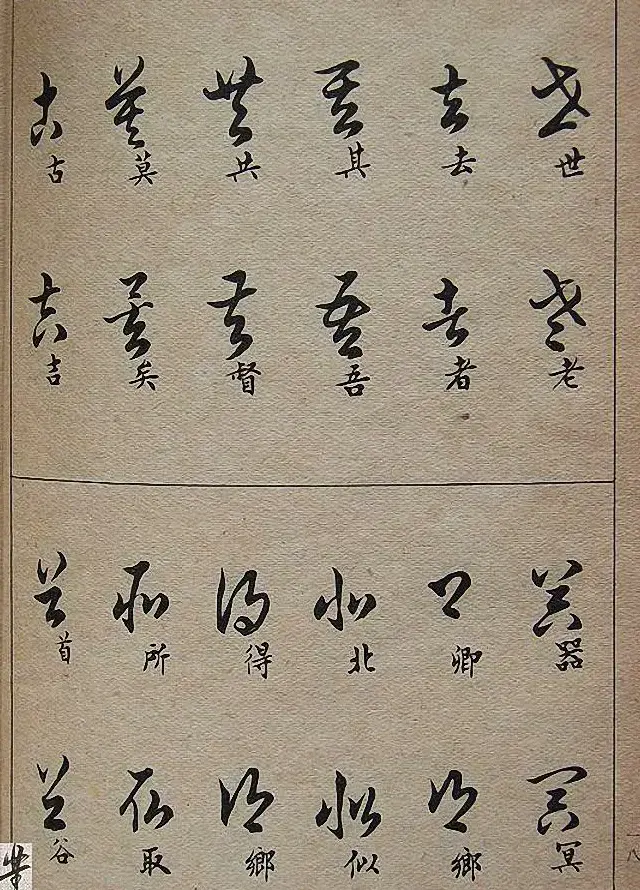 世 老
去 者
其 吾
共 督
莫 矣
古 吉
器 冥
卿 鄉
北 似
得 鄉
所 取
首 谷
一八